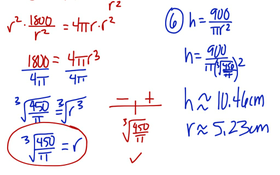 r²
r² · 1800/r² = 4πr · r²
1800/4π = 4πr³/4π
³√(450/π) = ³√r³
³√(450/π) = r
− +
³√(450/π)
✓
⑥ h = 900/πr²
h = 900/π(³√(450/π))²
h ≈ 10.46cm
r ≈ 5.23cm